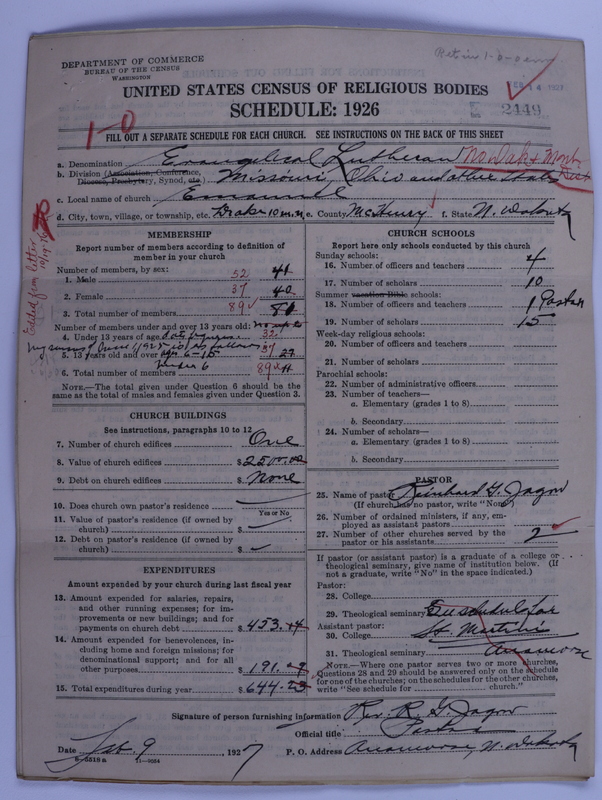 DEPARTMENT OF COMMERCE
BUREAU OF THE CENSUS
WASHINGTON
UNITED STATES CENSUS OF RELIGIOUS BODIES
SCHEDULE: 1926
2449
1-0
FILL OUT A SEPARATE SCHEDULE FOR EACH CHURCH. SEE INSTRUCTIONS ON THE BACK OF THIS SHEET
a. Denomination Evangelical Lutheran No Dak & Mont Dist
b. Division (Association, Conference, Diocese, Presbytery, Synod, etc.) Missouri, Ohio and other States
c. Local name of church Emanuel
d. City, town, village, or township, etc. Drake 10 m. n. e. County McHenry f. State N. Dakota
Edited from letter
MEMBERSHIP
Report number of members according to definition of
member in your church
Number of members, by sex:
1. Male 52 41
2. Female 37 40
3. Total number of members 89 81
Number of members under and over 13 years old:
4. Under 13 years of age 32
5. 13 years old and over 57
6. Total number of members 89
NOTE.—The total given under Question 6 should be
the same as the total of males and females given under Question 3.
CHURCH BUILDINGS
See instructions, paragraphs 10 to 12
7. Number of church edifices One
8. Value of church edifices $ 2500.00
9. Debt on church edifices $ None
10. Does church own pastor's residence
Yes or No
11. Value of pastor's residence (if owned by
church) $ —
12. Debt on pastor's residence (if owned by
church) $ —
EXPENDITURES
Amount expended by your church during last fiscal year
13. Amount expended for salaries, repairs,
and other running expenses; for im-
provements or new buildings; and for
payments on church debt $ 453
14. Amount expended for benevolences, in-
cluding home and foreign missions; for
denominational support; and for all
other purposes $ 191
15. Total expenditures during year $ 644
CHURCH SCHOOLS
Report here only schools conducted by this church
Sunday schools:
16. Number of officers and teachers 4
17. Number of scholars 10
Summer vacation Bible schools:
18. Number of officers and teachers 1 Pastor
19. Number of scholars 15
Week-day religious schools:
20. Number of officers and teachers
21. Number of scholars
Parochial schools:
22. Number of administrative officers
23. Number of teachers—
a. Elementary (grades 1 to 8)
b. Secondary
24. Number of scholars—
a. Elementary (grades 1 to 8)
b. Secondary
PASTOR
25. Name of pastor Reinhard G. Jagow
(If church has no pastor, write "None")
26. Number of ordained ministers, if any, em-
ployed as assistant pastors
27. Number of other churches served by the
pastor or his assistants 2
If pastor (or assistant pastor) is a graduate of a college or
theological seminary, give name of institution below. (If
not a graduate, write "No" in the space indicated.)
Pastor:
28. College
29. Theological seminary See schedule for
Assistant pastor:
30. College St. Martin's
31. Theological seminary Anamoose
NOTE.—Where one pastor serves two or more churches,
Questions 28 and 29 should be answered only on the schedule
for one of the churches; on the schedules for the other churches,
write "See schedule for church."
Signature of person furnishing information Rev. R. G. Jagow
Official title Pastor
Date Feb. 9 1927 P. O. Address Anamoose, N. Dakota
8-2516 a 11—9024